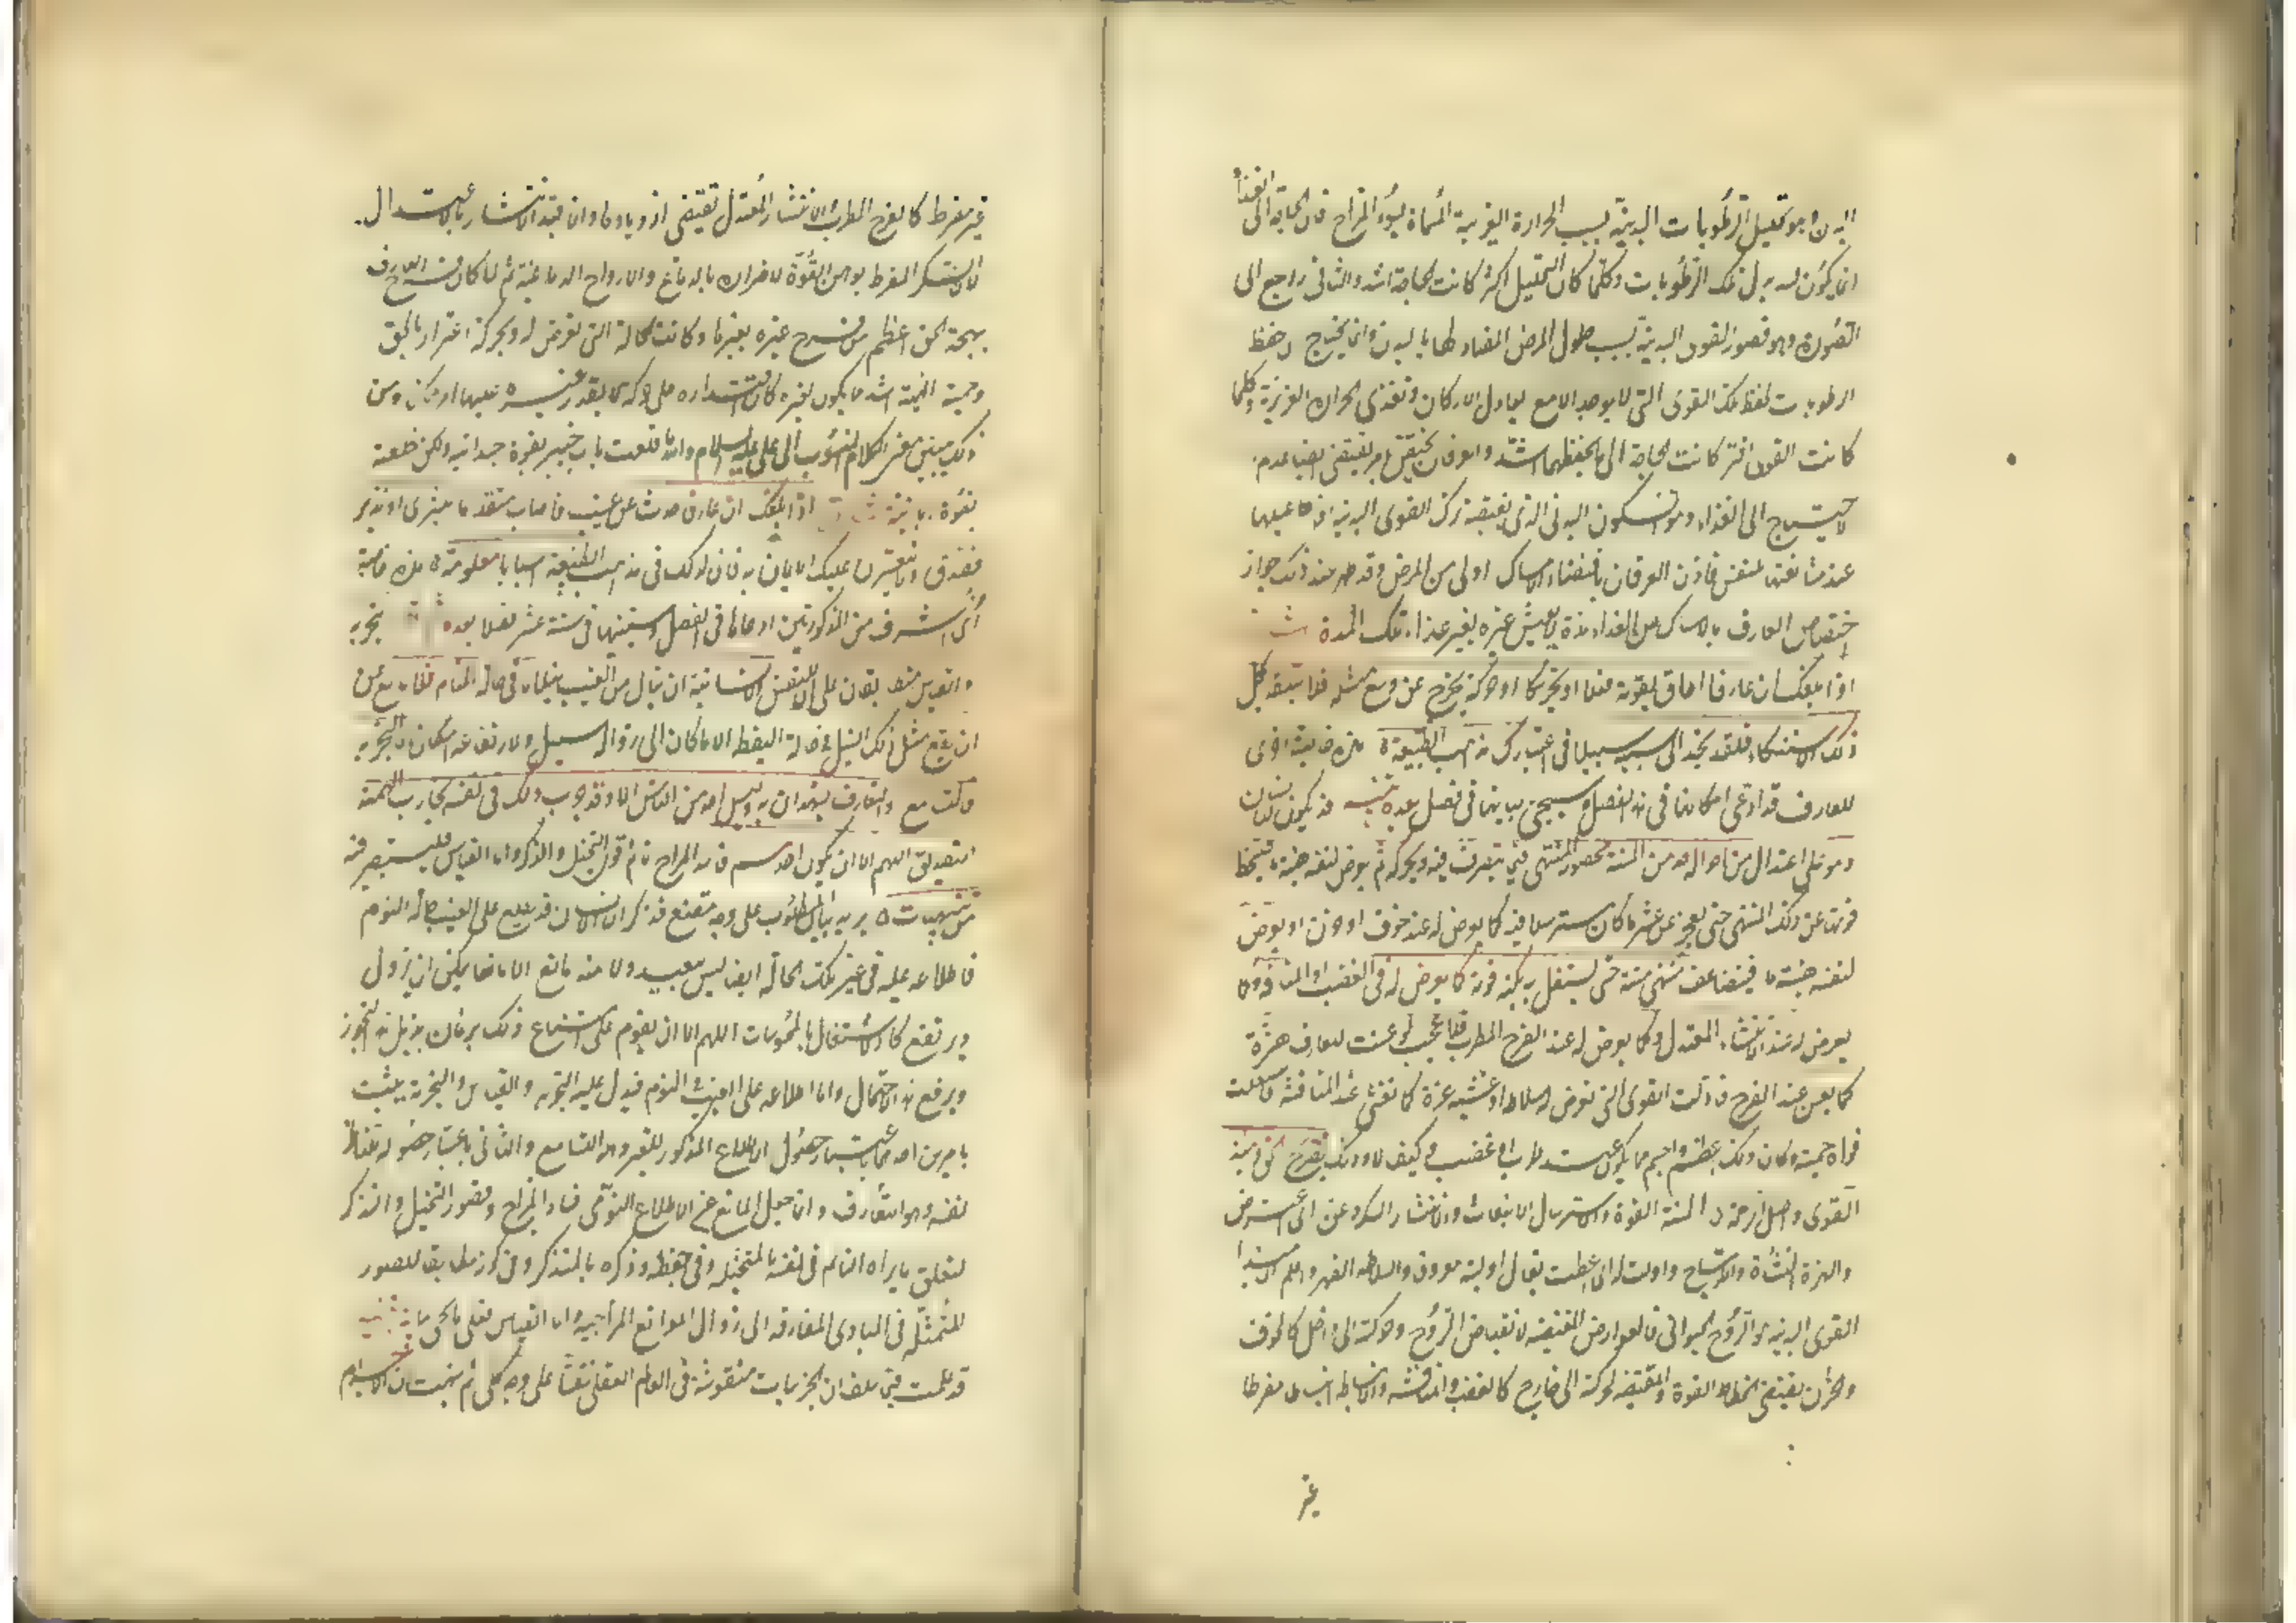 البدن وهو تحليل الرطوبات البدنية بسبب الحرارة الغريبة المسماة بسوء المزاج فان الحاجة الى الغذاء
انما يكون لسد بدل تلك الرطوبات وكلما كان التحليل اكثر كانت الحاجة اشد والثاني راجع الى
القوة وهو قصور القوى البدنية بسبب حلول المرض المضاد لها بالبدن وانما يحتاج حفظ
الرطوبات لحفظ تلك القوى التي لا يوجد الا مع تعادل الاركان وتغذى الحرارة الغريزية وكلما
كانت القوى افتر كانت الحاجة الى ما يحفظها اشد والعرفان يختص بامر يقتضى ايضا عدم
الاحتياج الى الغذاء وهو السكون البدني الذي يقتضيه ترك القوى البدنية افاعيلها
عند مشايعتها للنفس فاذن العرفان باقتضاء الامساك اولى من المرض وقد ظهر عند ذلك جواز
اختصاص العارف بالامساك عن الغذاء مدة لا يعيش غيره بغير غذاء تلك المدة
اذا بلغك ان عارفا اطاق بقوته فعلا او تحريكا او حركة يخرج عن وسع مثله فلا تتلقه بكل
ذلك الاستنكار فلقد تجد الى سببه سبيلا في اعتبارك مذاهب الطبيعة هذه خاصية اخرى
للعارف قد ادعى امكانها في هذا الفصل وسيجئ بيانها في فصل بعده تنبيه قد يكون للانسان
وهو على اعتدال من احواله حد من المنة محصور المنتهى فيما يتصرف فيه ويحركه ثم يعرض لنفسه هيئة ما فينحط
قوته عن ذلك المنتهى حتى يعجز عن عشر ما كان مسترسلا فيه كما يعرض له عند خوف او حزن او يعرض
لنفسه هيئة ما فيتضاعف منتهى منته حتى يستقل به بكنه قوته كما يعرض له في الغضب او المنافسة وكما
يعرض له عند الانتشاء المعتدل وكما يعرض له عند الفرح المطرب فلا عجب لو عنت للعارف هزة
كما يعن عند الفرح فاولت القوى التي تعرض له سلاطة او غشيته عزة كما تغشى عند المنافسة فاشتعلت
قواه حمية وكان ذلك اعظم واجسم مما يكون عند طرب او غضب وكيف لا وذلك بصريح الحق ومبدء
القوى واصل الرحمة المنة القوة والاسترسال الانبعاث والانتشاء السكر وعن اى اعترض
والهزة النشأة والارتياح واولت له اى اعطت يقال اوليته معروفا والسلاطة القهر واعلم ان مبدأ
القوى البدنية هو الروح الحيواني فالعوارض المقتضية لانقباض الروح وحركته الى داخل كالخوف
والحزن يقتضى انحطاط القوة والمقتضية لحركته الى خارج كالغضب والمنافسة والانبساطه انبساطا مفرطا
غير
غير مفرط كالفرح المطرب والانتشاء المعتدل يقتضى ازديادها وانما قيد الانتشاء بالاعتدال
لان السكر المفرط يوهن القوة لاضراره بالدماغ والارواح الدماغية ثم لما كان فرح العارف
ببهجة الحق اعظم من فرح غيره بغيرها وكانت الحالة التي تعرض له وتحركه اعتزازا بالحق
وحمية الهية اشد مما يكون لغيره كان اقتداره على حركة لا يقدر غيره عليها امر ممكن ومن
ذلك يتبين معنى الكلام المنسوب الى على عليه السلام والله ما قلعت باب خيبر بقوة جسدانية ولكن قلعته
بقوة ربانية تنبيه اذا بلغك ان عارفا حدث عن غيب فاصاب متقدما ببشرى او نذير
فصدق ولا يتعسرن عليك الايمان به فان لذلك في مذاهب الطبيعة اسبابا معلومة هذه خاصية
اخرى اشرف من المذكورتين ادعاها في الفصل وسيبينها في ستة عشر فصلا بعده اشارة التجربة
والقياس متطابقان على ان للنفس الانسانية ان تنال من الغيب نيلا ما في حالة المنام فلا مانع من
ان يقع مثل ذلك النيل في حالة اليقظة الا ما كان الى زواله سبيل ولارتفاعه امكان اما التجربة
فالتسامع والتعارف يشهدان به وليس احد من الناس الا وقد جرب ذلك في نفسه تجارب الهمته
التصديق اللهم الا ان يكون احدهم فاسد المزاج نائم قوى التخيل والذكر واما القياس فليستبصر فيه
من تنبيهات يريد بيان المطلوب على وجه مقنع فذكر ان الانسان قد يطلع على الغيب حالة النوم
فاطلاعه عليه في غير تلك الحالة ايضا ليس ببعيد ولا منه مانع الا مانعا يمكن ان يزول
ويرتفع كالاشتغال بالمحسوسات اللهم الا ان يقوم على امتناع ذلك برهان يزيل هذا التجويز
ويرفع هذا الاحتمال واما اطلاعه على الغيب في النوم فيدل عليه التجربة والقياس والتجربة يثبت
بامرين احدهما باعتبار حصول الاطلاع المذكور للغير وهو التسامع والثاني باعتبار حصوله للناظر
نفسه وهو التعارف وانما جعل المانع عن الاطلاع النومى فساد المزاج وقصور التخيل والتذكر
لتعلق ما يراه النائم في نفسه بالمتخيلة وفي حفظه وذكره بالمتذكرة وفي كونه مطابقا للصور
المتمثلة في المبادى المفارقة الى زوال الموانع المزاجية واما القياس فعلى ما يجئ بيانه تنبيه
قد علمت فيما سلف ان الجزئيات منقوشة في العالم العقلي نقشا على وجه كلى ثم نبهت لان الاجرام